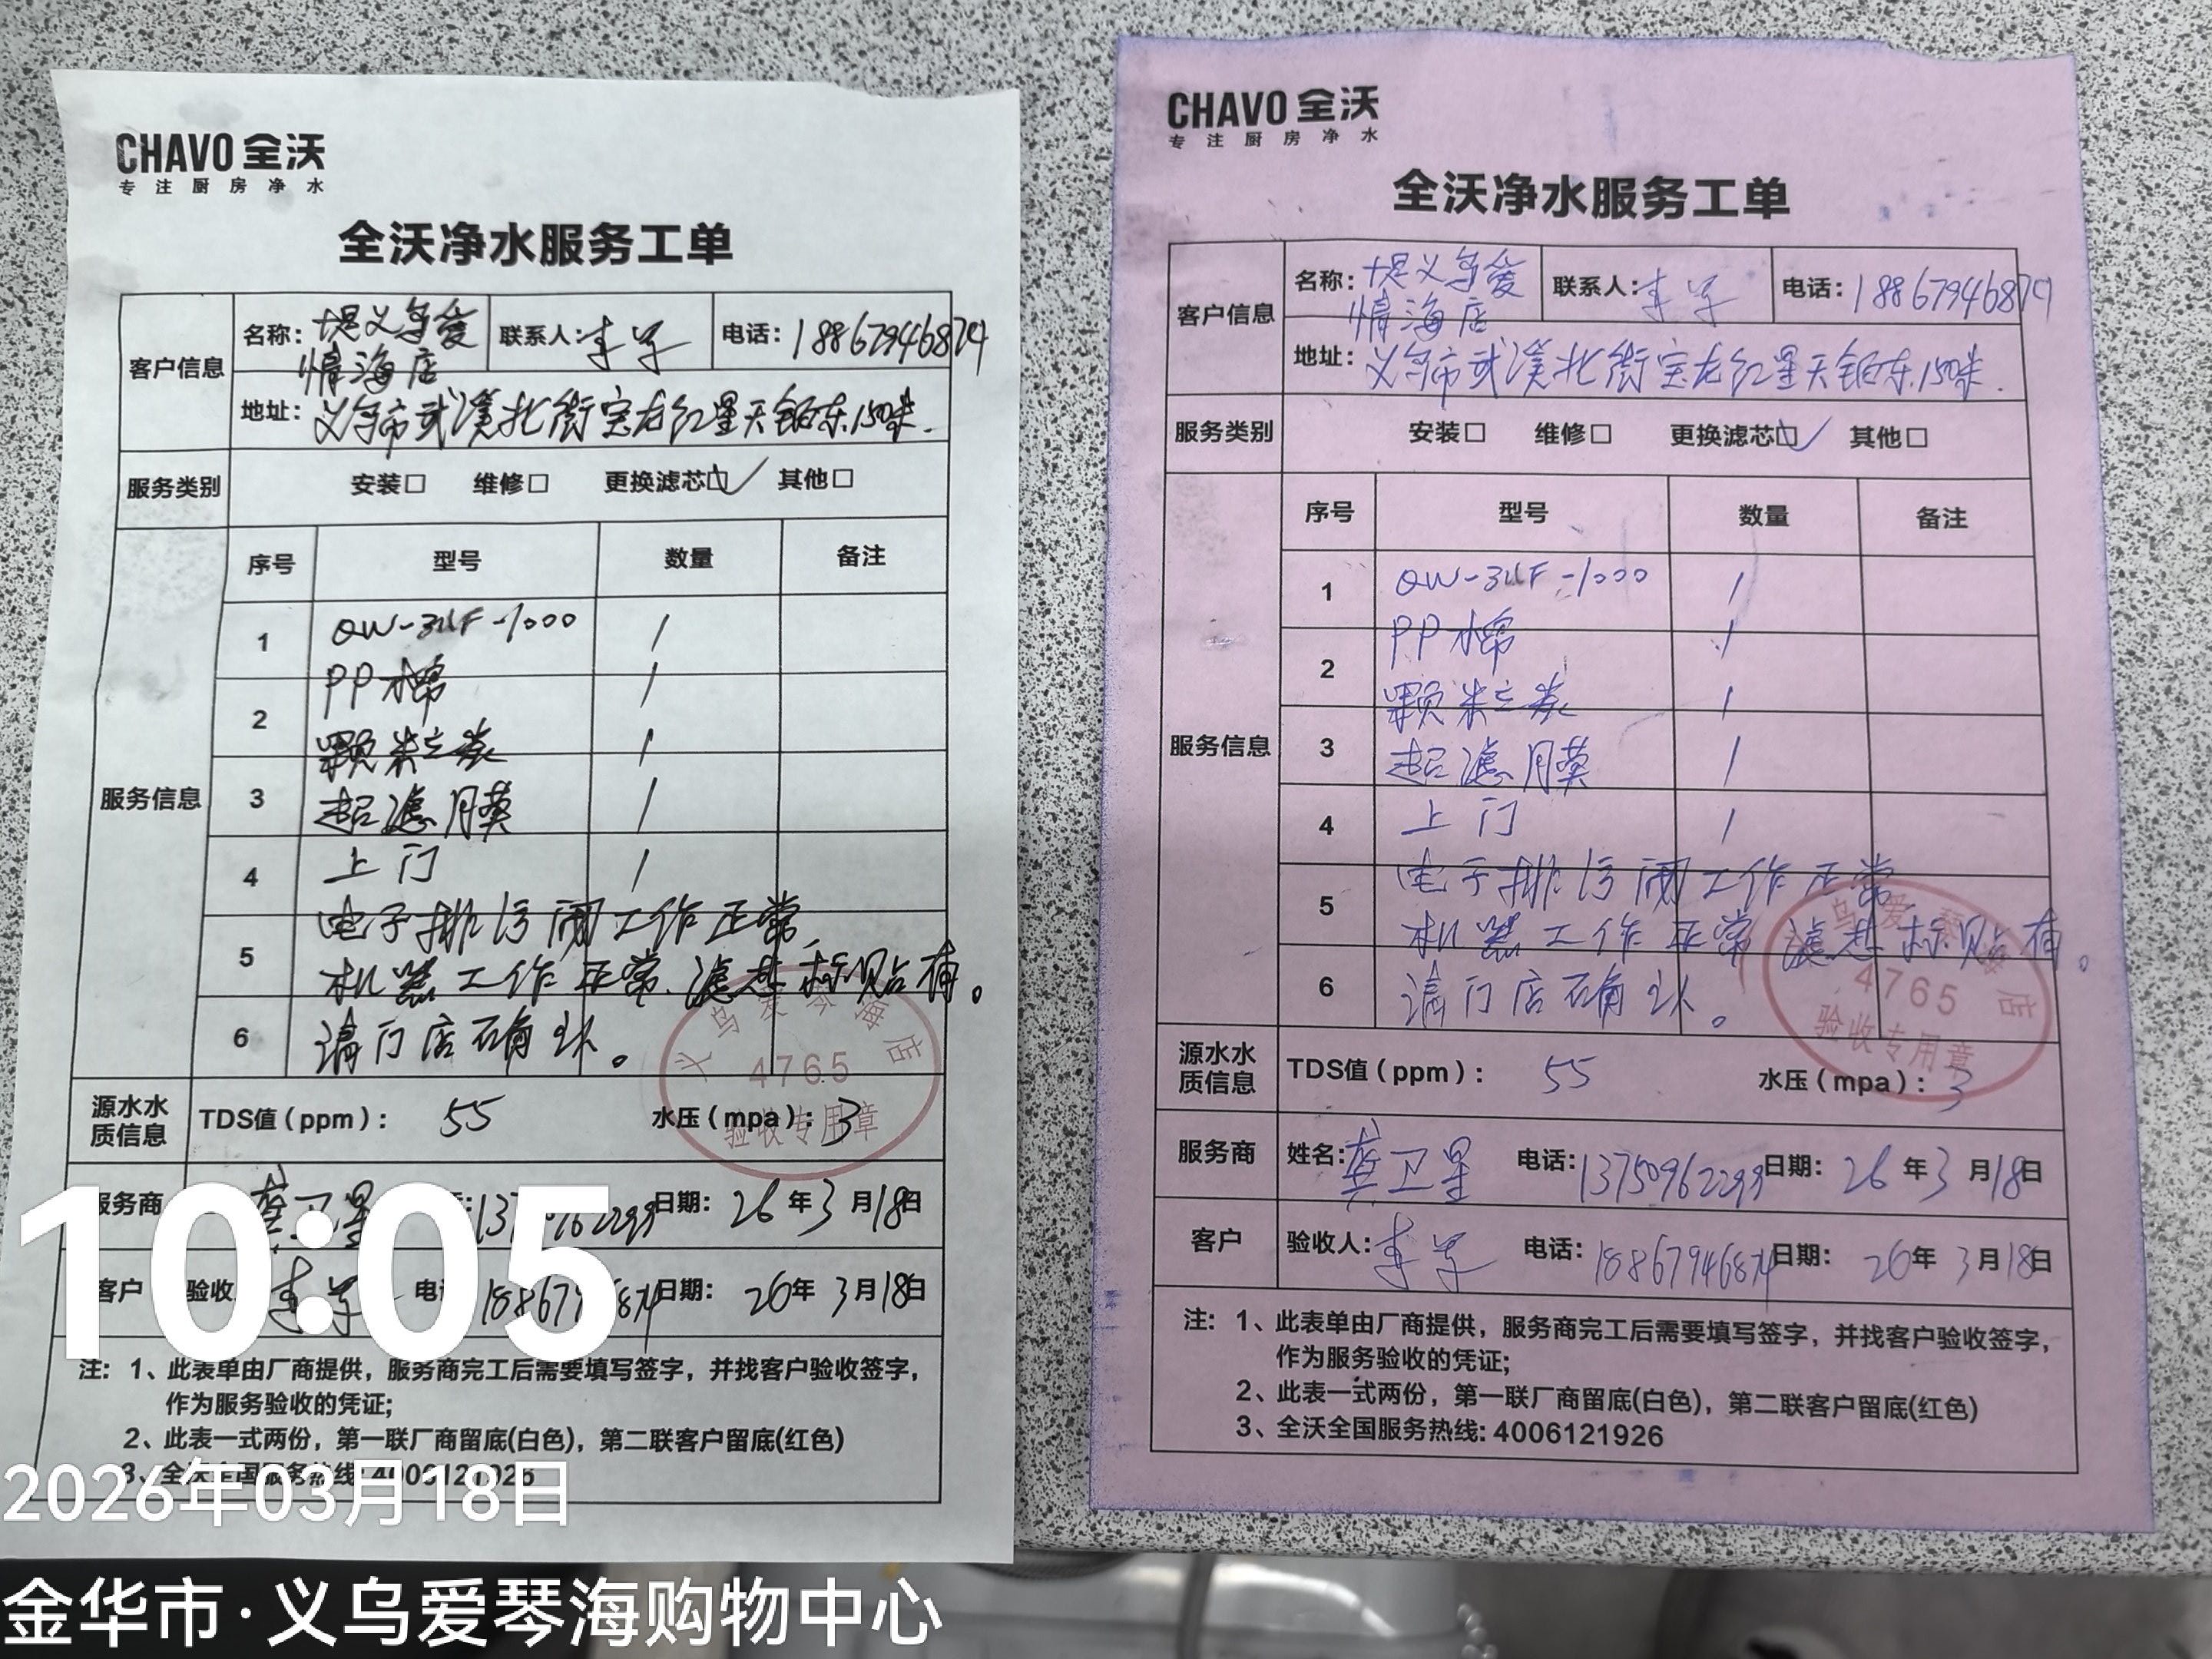 CHAVO 全沃
专注厨房净水
全沃净水服务工单
客户信息
名称: 堤义乌爱
情海店
联系人: 李军
电话: 18867946874
地址: 义乌市武溪北街宝龙红星天铂东150米.
服务类别 安装□ 维修□ 更换滤芯☑ 其他□
服务信息
序号 型号 数量 备注
1 QW-3UF-1000 1
2 PP棉 1
颗粒炭 1
3 超滤膜 1
4 上门 1
5 电子排污阀工作正常
机器工作正常.滤芯标贴有。
6 请门店确认。
义乌爱琴海店
4765
验收专用章
源水水质信息 TDS值(ppm): 55 水压(mpa): 3
服务商 龚卫星 日期: 26年3月18日
客户 验收 李军 电 日期: 26年3月18日
注: 1、此表单由厂商提供，服务商完工后需要填写签字，并找客户验收签字，
作为服务验收的凭证;
2、此表一式两份，第一联厂商留底(白色)，第二联客户留底(红色)
3、全沃全国服务热线: 4006121926
CHAVO 全沃
专注厨房净水
全沃净水服务工单
客户信息
名称: 堤义乌爱
情海店
联系人: 李军
电话: 18867946874
地址: 义乌市武溪北街宝龙红星天铂东150米.
服务类别 安装□ 维修□ 更换滤芯☑ 其他□
服务信息
序号 型号 数量 备注
1 QW-3UF-1000 1
2 PP棉 1
颗粒炭 1
3 超滤膜 1
4 上门 1
5 电子排污阀工作正常
机器工作正常 滤芯标贴有。
6 请门店确认。
乌爱琴海店
4765
验收专用章
源水水质信息 TDS值(ppm): 55 水压(mpa): 3
服务商 姓名: 龚卫星 电话: 13750962299 日期: 26年3月18日
客户 验收人: 李军 电话: 18867946874 日期: 26年3月18日
注: 1、此表单由厂商提供，服务商完工后需要填写签字，并找客户验收签字，
作为服务验收的凭证;
2、此表一式两份，第一联厂商留底(白色)，第二联客户留底(红色)
3、全沃全国服务热线: 4006121926
10:05
2026年03月18日
金华市·义乌爱琴海购物中心